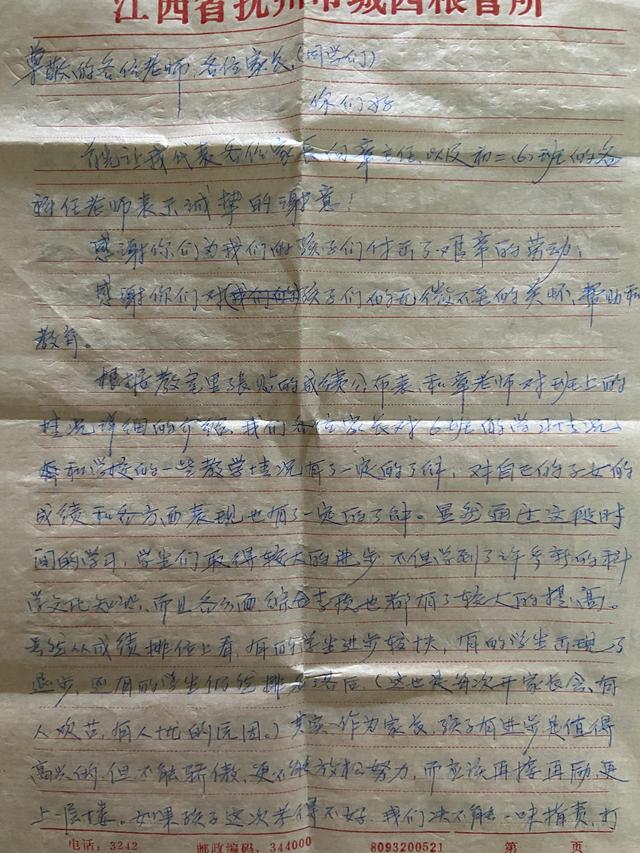 江西省抚州市城西粮管所
尊敬的各位老师、各位家长、(同学们)
你们好
首先让我代表各位家长向章主任以及初二(6)班的各
科任老师表示诚挚的谢意!
感谢你们为我们的孩子们付出了艰辛的劳动;
感谢你们对(我们的)孩子们的无微不至的关怀、帮助和
教育。
根据教室里张贴的成绩公布表和章老师对班上的
情况详细的介绍,我们各位家长对6班的学习情况
和学校的一些教学情况有了一定的了解,对自己的子女的
成绩和各方面表现也有了一定的了解。显然通过这段时
间的学习,学生们取得较大的进步,不但学到了许多新的科
学文化知识,而且各方面综合素质也都有了较大的提高。
虽然从成绩排位上看,有的学生进步较快,有的学生出现了
退步,还有的学生仍然排名落后,(这也是每次开家长会,有
人欢喜,有人忧的原因。)其实作为家长,孩子有进步是值得
高兴的,但不能骄傲,更不能放松努力,而应该再接再励,更
上一层楼。如果孩子这次考得不好,我们决不能一味指责,打
电话:3242 邮政编码:344000 8093200521 第 页